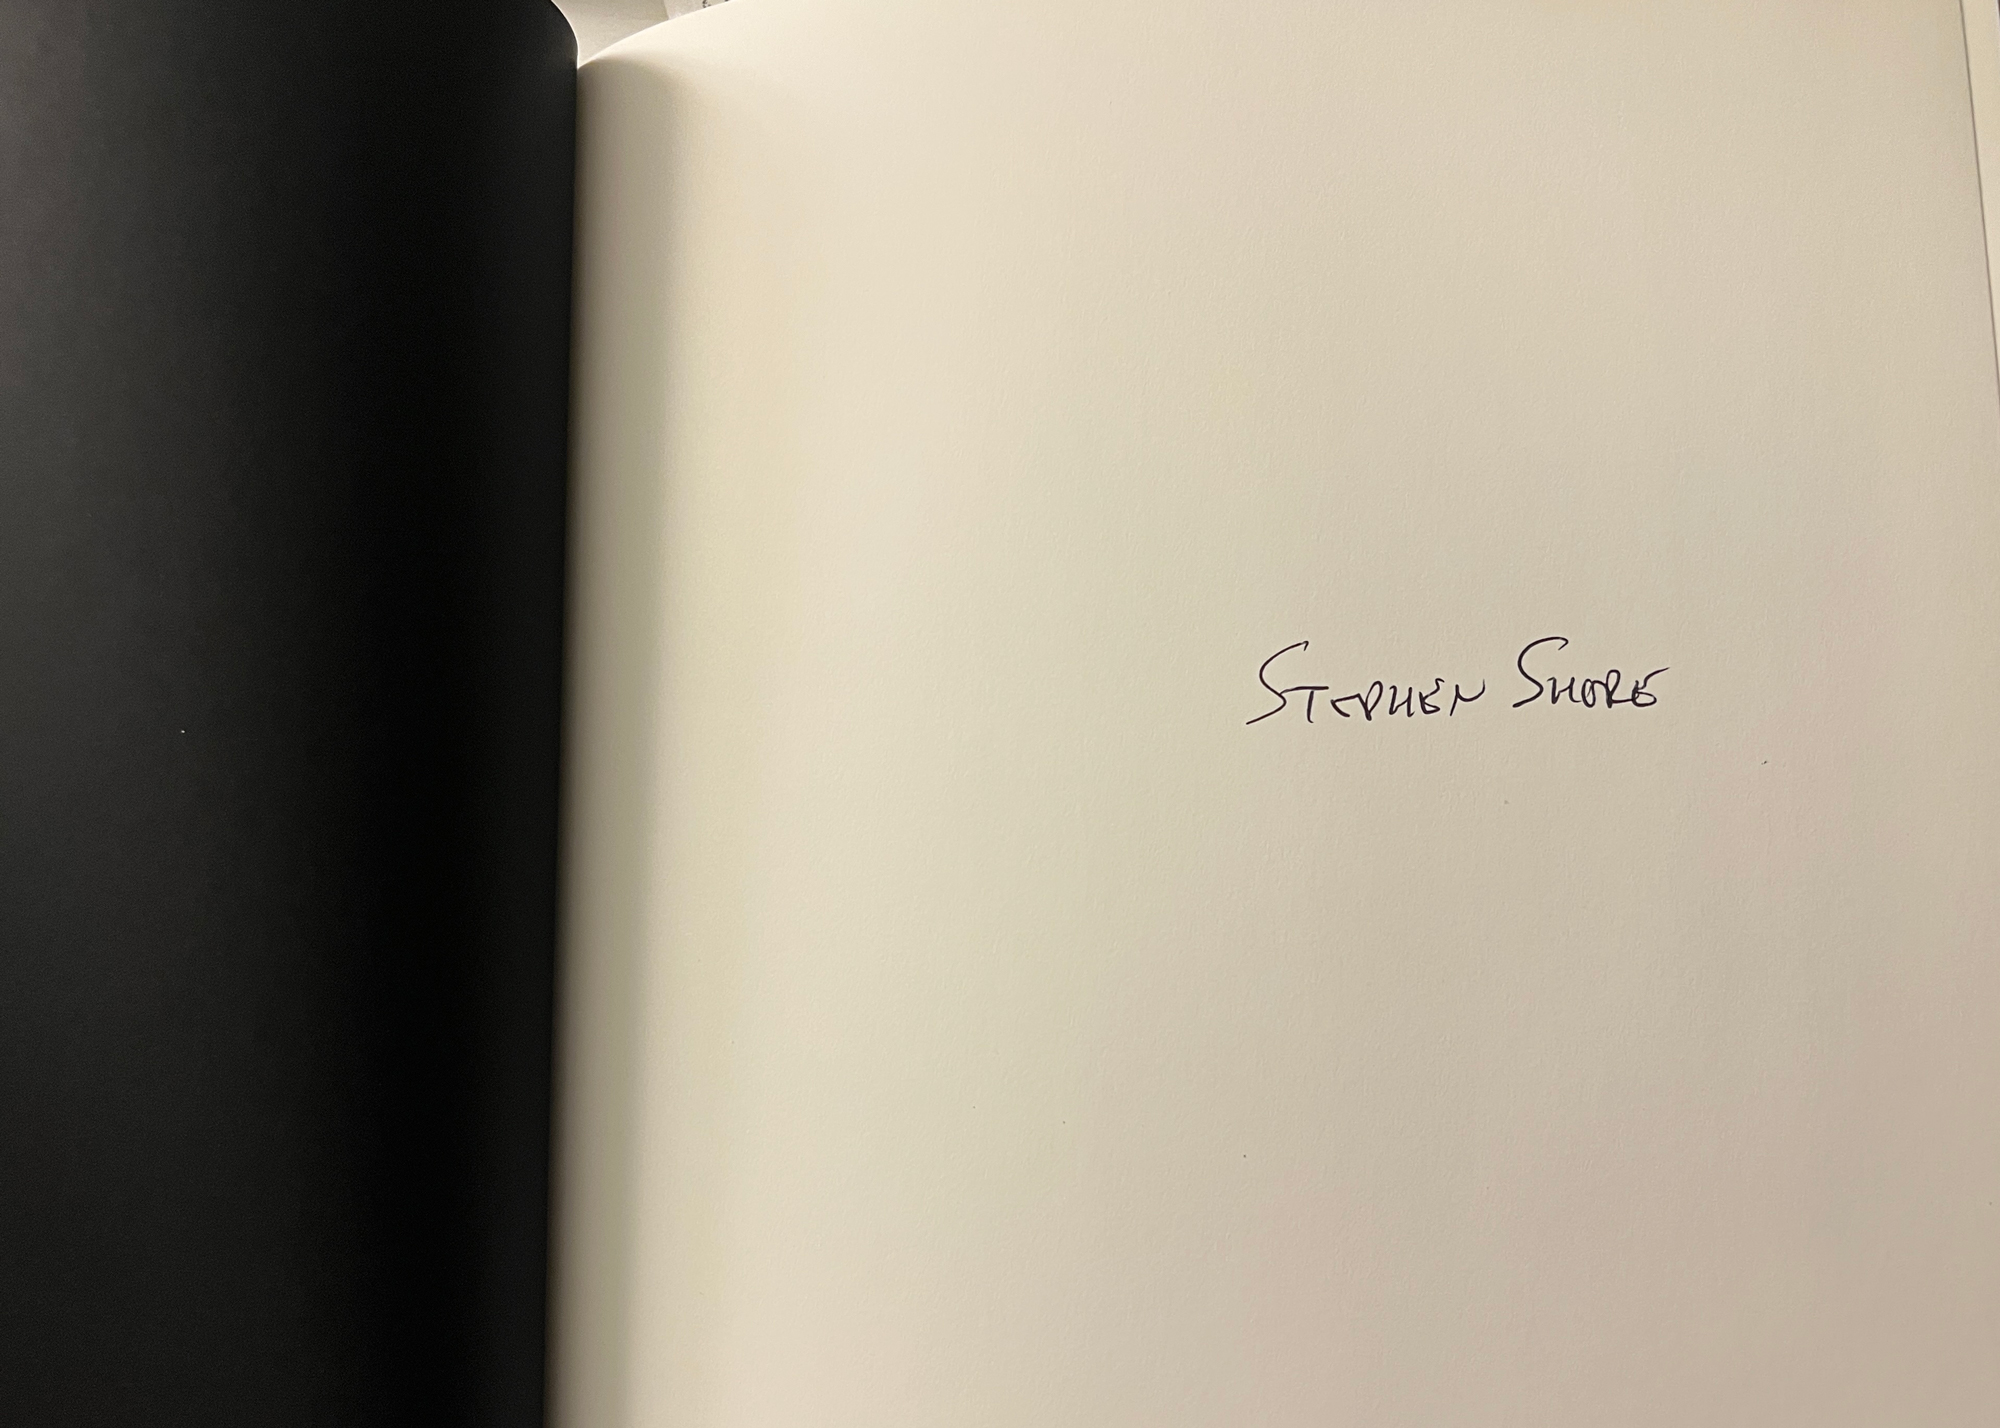 STEPHEN SHORE